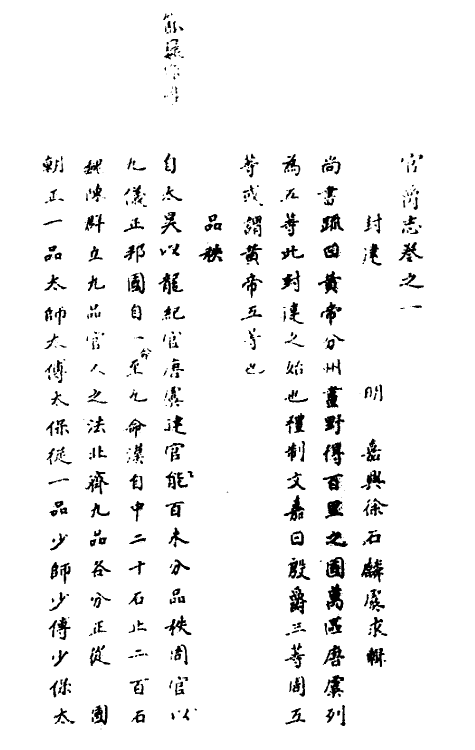 官爵志卷之一
明 嘉興徐石麟虞求輯
封建
尚書疏曰黃帝分州畫野得百里之國萬區唐虞列
為五等此封建之始也禮制文嘉曰殷爵三等周五
等或謂黃帝五等也
品秩
自太昊以龍紀官唐虞建官能百未分品秩周官以
九儀正邦國自一命至九命漢自中二千石止二百石
魏陳群立九品官人之法北齊九品各分正從 國
朝正一品太師太傅太保從一品少師少傅少保太